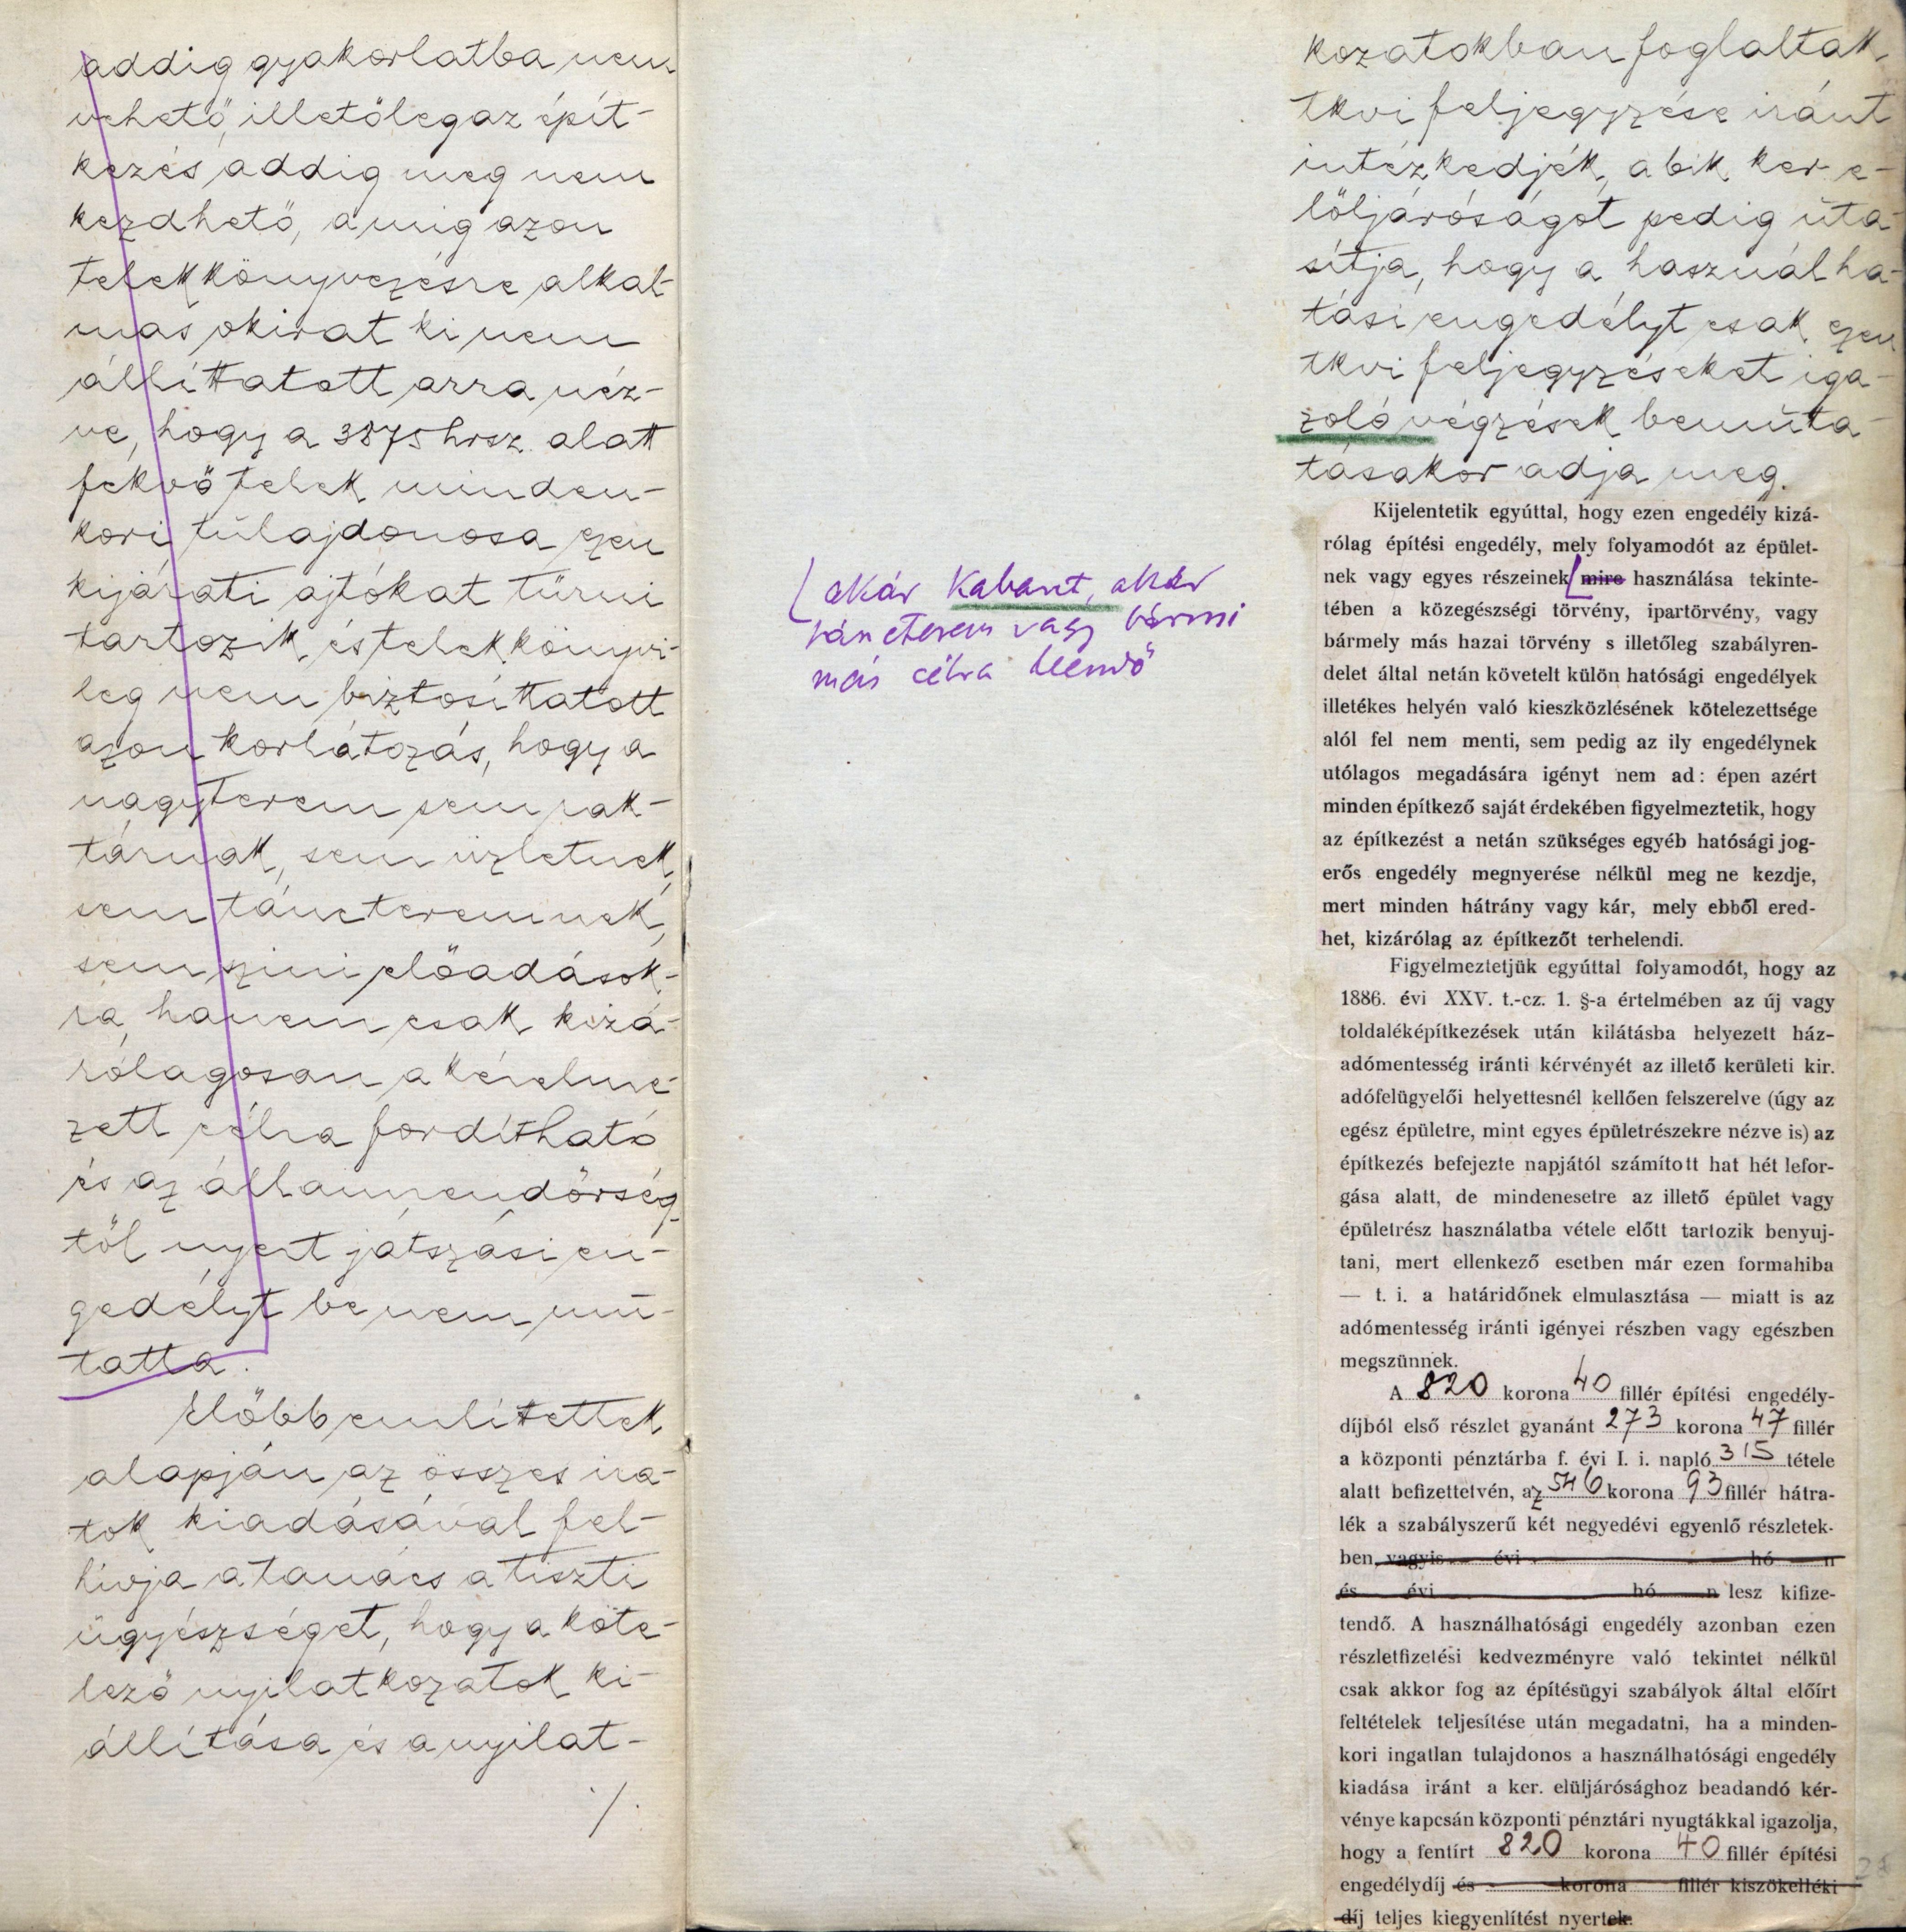 addig gyakorlatba nem
vehető, illetőleg az épít-
kezés addig meg nem
kezdhető, amig azon
telekkönyvezésre alkal-
mas okirat ki nem
állíttatott arra néz-
ve, hogy a 3875 hrsz. alatt
fekvő telek minden-
kori tulajdonosa ezen
kijárati ajtókat tűrni
tartozik, és telekkönyvi-
leg nem biztosíttatott
azon korlátozás, hogy a
nagyterem sem rak-
tárnak, sem üzletnek,
sem táncteremnek,
sem szini előadások-
ra, hanem csak kizá-
rólagosan a kérelme-
zett célra fordítható
és az államrendőrség-
től nyert játszási en-
gedélyt be nem mu-
tatta.
Előbb említettek
alapján az összes ira-
tok kiadásával fel-
hívja a tanács a tiszti
ügyészséget, hogy a köte-
lező nyilatkozatok ki-
állítása és a nyilat-
./.
akár Kabaret, akár
táncterem vagy bármi
más célra leendő
kozatokban foglaltak
tkvi feljegyzése iránt
intézkedjék, a bik. ker. e-
löljáróságot pedig uta-
sítja, hogy a használha-
tási engedélyt csak ezen
tkvi feljegyzéseket iga-
zoló végzések bemuta-
tásakor adja meg.
Kijelentetik egyúttal, hogy ezen engedély kizá-
rólag építési engedély, mely folyamodót az épület-
nek vagy egyes részeinek mire használása tekinte-
tében a közegészségi törvény, ipartörvény, vagy
bármely más hazai törvény s illetőleg szabályren-
delet által netán követelt külön hatósági engedélyek
illetékes helyén való kieszközlésének kötelezettsége
alól fel nem menti, sem pedig az ily engedélynek
utólagos megadására igényt nem ad: épen azért
minden építkező saját érdekében figyelmeztetik, hogy
az építkezést a netán szükséges egyéb hatósági jog-
erős engedély megnyerése nélkül meg ne kezdje,
mert minden hátrány vagy kár, mely ebből ered-
het, kizárólag az építkezőt terhelendi.
Figyelmeztetjük egyúttal folyamodót, hogy az
1886. évi XXV. t.-cz. 1. §-a értelmében az új vagy
toldaléképítkezések után kilátásba helyezett ház-
adómentesség iránti kérvényét az illető kerületi kir.
adófelügyelői helyettesnél kellően felszerelve (úgy az
egész épületre, mint egyes épületrészekre nézve is) az
építkezés befejezte napjától számított hat hét lefor-
gása alatt, de mindenesetre az illető épület vagy
épületrész használatba vétele előtt tartozik benyuj-
tani, mert ellenkező esetben már ezen formahiba
— t. i. a határidőnek elmulasztása — miatt is az
adómentesség iránti igényei részben vagy egészben
megszünnek.
A 820 korona 40 fillér építési engedély-
díjból első részlet gyanánt 273 korona 47 fillér
a központi pénztárba f. évi I. i. napló 315 tétele
alatt befizettetvén, az 546 korona 93 fillér hátra-
lék a szabályszerű két negyedévi egyenlő részletek-
ben, vagyis évi hó n
és évi hó n lesz kifize-
tendő. A használhatósági engedély azonban ezen
részletfizetési kedvezményre való tekintet nélkül
csak akkor fog az építésügyi szabályok által előírt
feltételek teljesítése után megadatni, ha a minden-
kori ingatlan tulajdonos a használhatósági engedély
kiadása iránt a ker. elüljárósághoz beadandó kér-
vénye kapcsán központi pénztári nyugtákkal igazolja,
hogy a fentírt 820 korona 40 fillér építési
engedélydíj és korona fillér kiszökelléki
díj teljes kiegyenlítést nyertek.